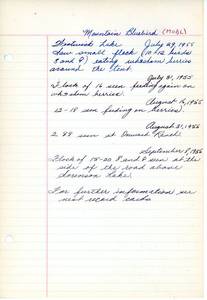 Mountain Bluebird (MOBL)
Lake July 29, 1955
Saw small flock (10-12 birds
♂ and ♀) eating berries
around the tent.
July 31, 1955
Flock of 16 seen feeding again on
berries.
August 16, 1955
12-18 seen feeding on berries.
August 31, 1955
2 ♂♂ seen at
September 8, 1955
Flock of 15-20 ♂ and ♀ seen at the
side of the road above
Sorenson Lake.
For further information see
next record cards